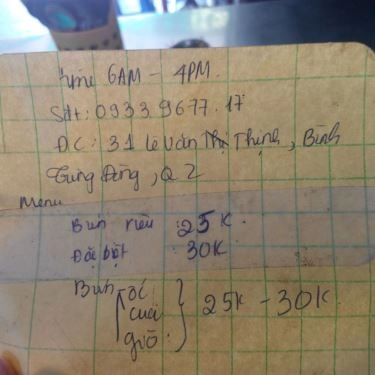 Time 6AM - 4PM.
Sđt: 0933 9677.17
ĐC: 31 Lê Văn Thị Thịnh, Bình
Trưng Đông, Q2
Menu
Bún riêu : 25K.
Đặc biệt : 30K
Bún ốc
cua
giò } 25K - 30K